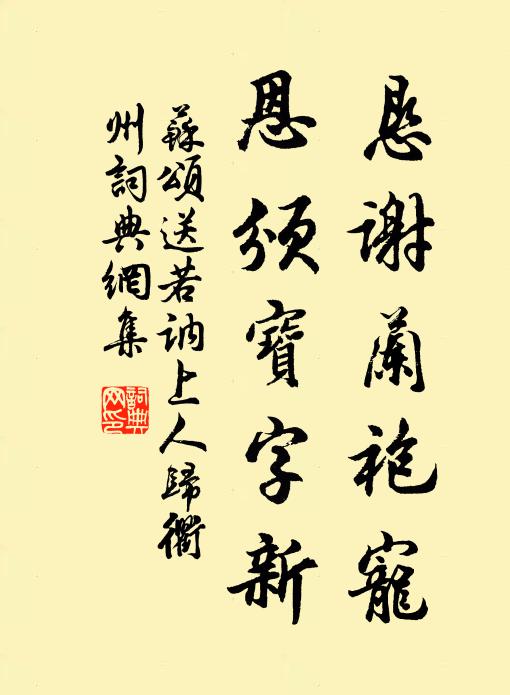 恳謝蘭袍寵
恩頒寶字新
蘇頌送若訥上人歸衢
州詞典網集
詞典
网印